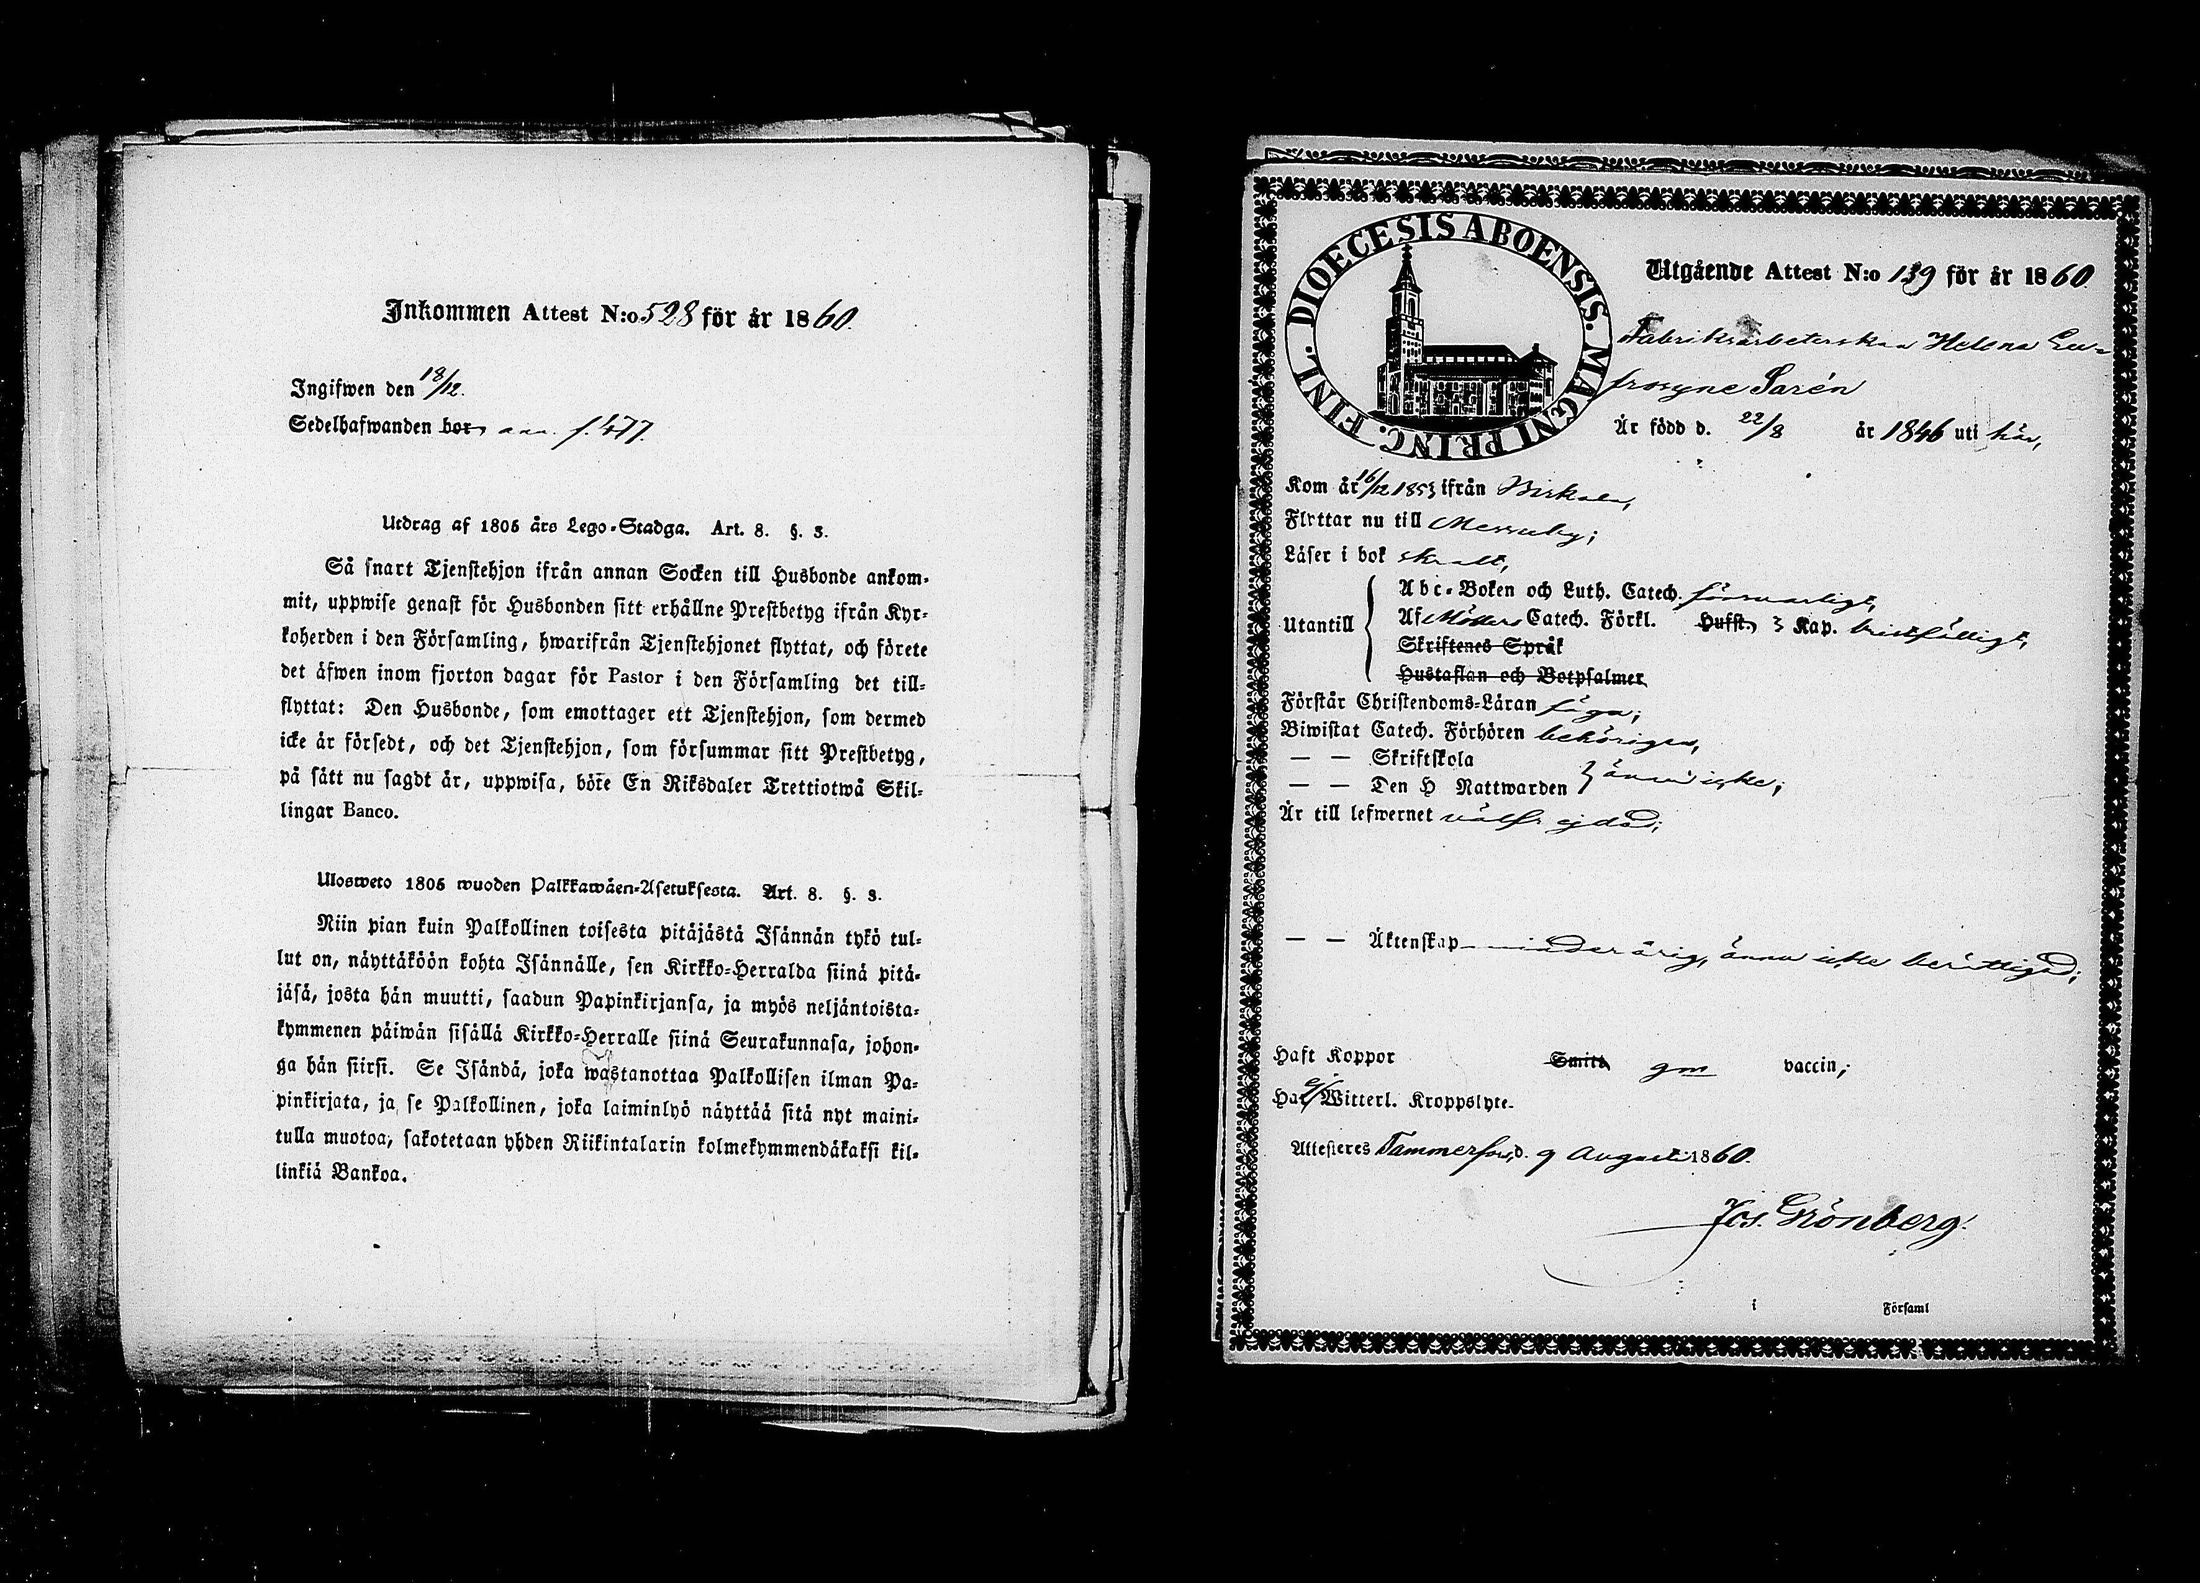 Inkommen Attest N:o 528 för år 1860.
Ingifwen den 18/12.
Sedelhafwanden bor ann. f. 477.
Utdrag af 1805 års Lego-Stadga. Art. 8. §. 3.
Så snart Tjenstehjon ifrån annan Socken till Husbonde ankom-
mit, uppwise genast för Husbonden sitt erhållne Prestbetyg ifrån Kyr-
koherden i den Församling, hwarifrån Tjenstehjonet flyttat, och förete
det äfwen inom fjorton dagar för Pastor i den Församling det till-
flyttat: Den Husbonde, som emottager ett Tjenstehjon, som dermed
icke är försedt, och det Tjenstehjon, som försummar sitt Prestbetyg,
på sätt nu sagdt är, uppwisa, böte En Riksdaler Trettiotwå Skil-
lingar Banco.
Ulosweto 1805 wuoden Palkkawäen-Asetuksesta. Art. 8. §. 3.
Niin pian kuin Palkollinen toisesta pitäjästä Isännän tykö tul-
lut on, näyttäköön kohta Isännälle, sen Kirkko-Herralda siinä pitä-
jäsä, josta hän muutti, saadun Papinkirjansa, ja myös neljäntoista-
kymmenen päiwän sisällä Kirkko-Herralle siinä Seurakunnasa, johon-
ga hän siirsi. Se Isändä, joka wastanottaa Palkollisen ilman Pa-
pinkirjata, ja se Palkollinen, joka laiminlyö näyttää sitä nyt maini-
tulla muotoa, sakotetaan yhden Riikintalarin kolmekymmendäkaksi kil-
linkiä Bankoa.
DIOECESIS ABOENSIS. MAGNI PRINC. FINL.
Utgående Attest N:o 139 för år 1860.
Fabriksarbeterskan Helena Eu-
frosyne Sarén
Är född d. 22/8 år 1846 uti här,
Kom år 16/12 1853 ifrån Birkala,
Flyttar nu till Messuby;
Läser i bok skralt,
Utantill
Abc-Boken och Luth. Catech. försvarligt,
Af Möllers Catech. Förkl. Hufst. 3 Kap. bristfälligt,
Skriftenes Språk
Hustaflan och Botpsalmer
Förstår Christendoms-Läran föga;
Biwistat Catech. Förhören behörigen,
— — Skriftskola
— — Den H Nattwarden } ännu icke;
Är till lefwernet välfrejdad;
— — Äktenskap minderårig, ännu icke berättigad;
Haft Koppor Smitt gm vaccin;
Har ej Witterl. Kroppslyte.
Attesteres Tammerfors, d. 9 Augusti 1860.
Jos. Grönberg.
i Församl